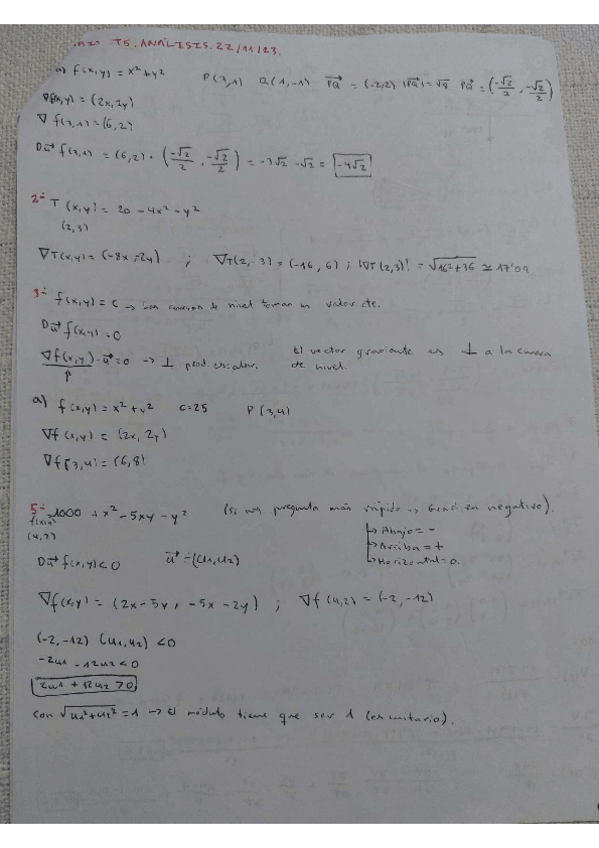 T5. ANÁLISIS. 22/11/23.
a) f(x,y) = x² + y² P(3,1) Q(1,-1) PQ⃗ = (-2,2) |PQ⃗| = √8 PQ⃗ = (-√2/2, -√2/2)
∇f(x,y) = (2x, 2y)
∇f(3,1) = (6,2)
Du⃗ f(3,1) = (6,2) · (-√2/2, -√2/2) = -3√2 - √2 = -4√2
2- T(x,y) = 20 - 4x² - y²
(2,3)
∇T(x,y) = (-8x, -2y) ; ∇T(2,3) = (-16, 6) ; |∇T(2,3)| = √16²+36 ≅ 17'09
3- f(x,y) = C → las curvas de nivel toman un valor cte.
Du⃗ f(x,y) = 0
∇f(x,y) · u⃗ = 0 → ⊥ prod. escalar. El vector gradiente es ⊥ a la curva
↑ de nivel.
a) f(x,y) = x² + y² C=25 P(3,4)
∇f(x,y) = (2x, 2y)
∇f(3,4) = (6,8)
5- 1000 + x² - 5xy - y² (Si nos pregunta más rápido → Grad. en negativo).
f(x,y)
(4,2) ↳ Abajo = -
↳ Arriba = +
Du⃗ f(x,y) < 0 u⃗ = (u1, u2) ↳ Horizontal = 0.
∇f(x,y) = (2x - 5y, -5x - 2y) ; ∇f(4,2) = (-2, -12)
(-2, -12) (u1, u2) < 0
-2u1 - 12u2 < 0
2u1 + 12u2 > 0
Con √u1² + u2² = 1 → El módulo tiene que ser 1 (es unitario).